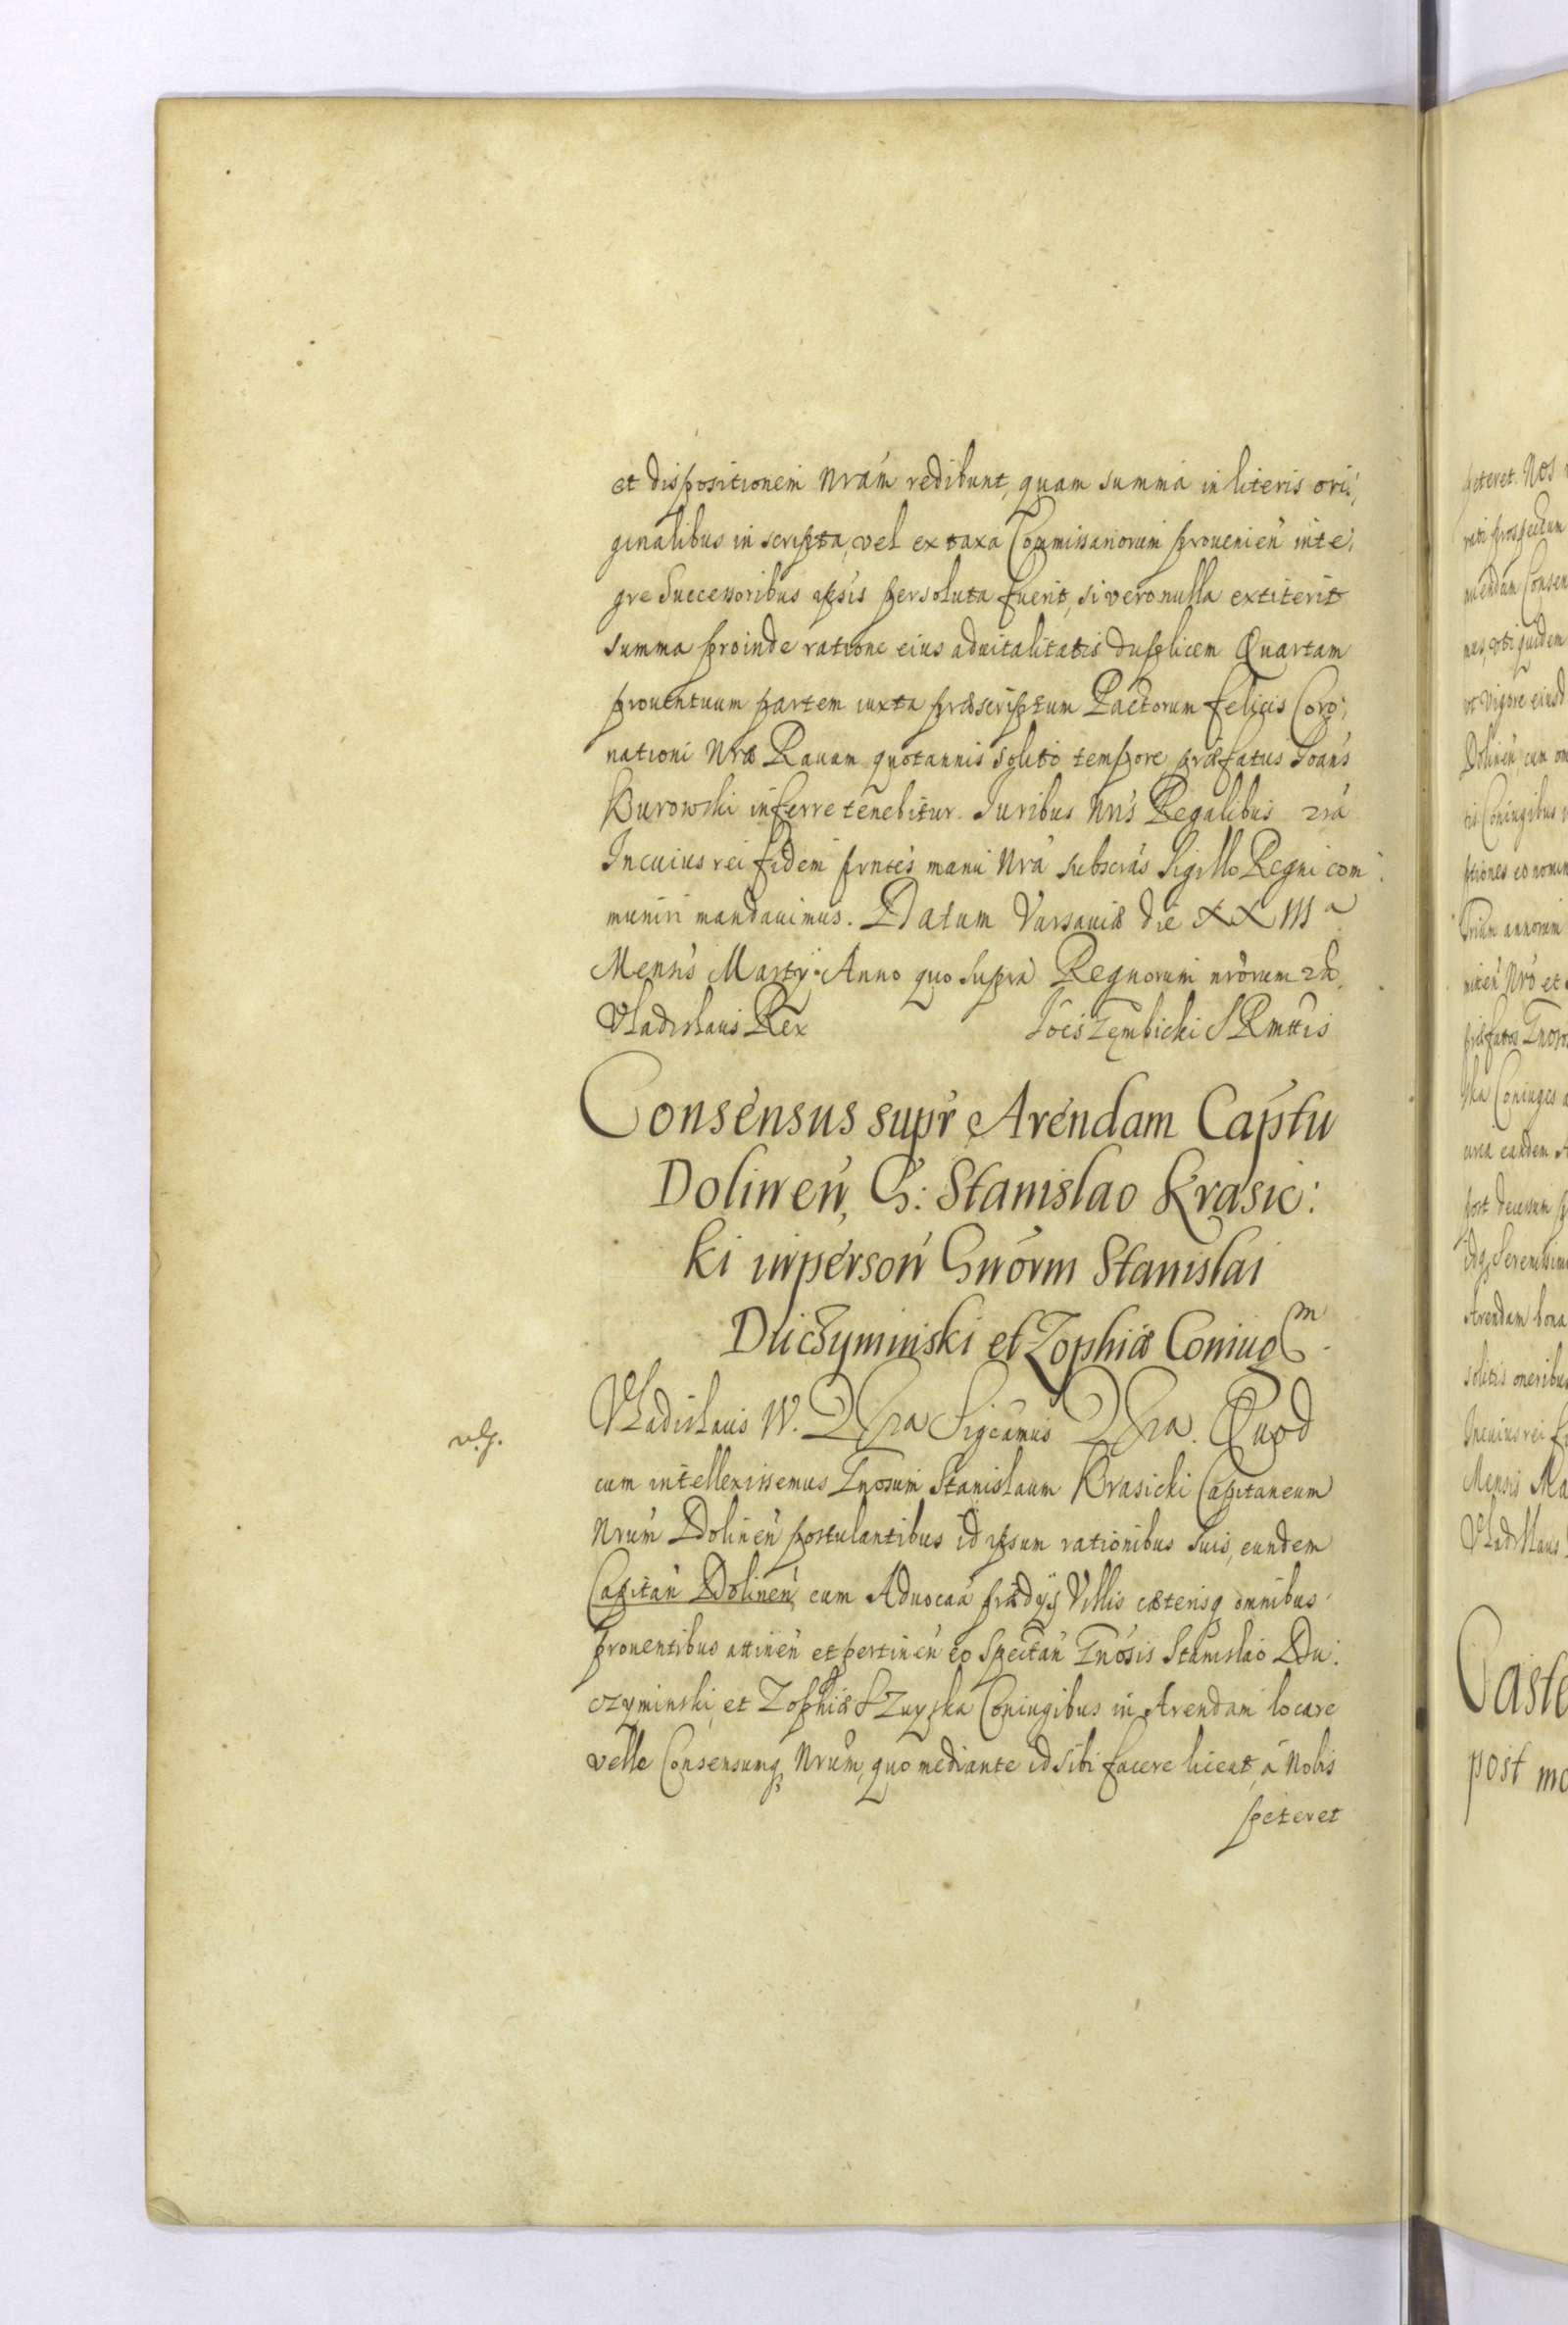 et dispositionem nram redibunt, quam summa in literis ori:
ginalibus inscripta, vel ex taxa Commissariorum provenien inte:
gre Successoribus ipsis persoluta fuerit, si vero nulla extiterit
summa proinde ratione eius advitalitatis duplicem Quartam
proventuum partem iuxta præscriptum Pactorum felicis Coro:
nationi Nræ Ravam quotannis solito tempore præfatus Joans
Kurowski inferre tenebitur. Juribus Nris Regalibus
In cuius rei fidem pntes manu Nra subscras Sigillo Regni com:
muniri mandavimus. Datum Varsaviæ die XXIII a
Mensis Martij Anno quo supra Regnorum nrorum
Vladislaus Rex Joes Zembicki S R mttis
Consensus supr Arendam Captu
Dolinen, G: Stanislao Krasic:
ki in person Gnorm Stanislai
Duczyminski et Zophiæ Coniug m
Vladislaus IV. Sigcamus Quod
cum intellexissemus Gnosum Stanislaum Krasicki Capitaneum
Nrum Dolinen postulantibus id ipsum rationibus suis, eundem
Capitan Dolinen, cum Advocaa prædijs Villis cæterisq omnibus
proventibus attinen et pertinen eo spectan Gnosis Stanislao Du:
czyminski, et Zophiæ Coniugibus in Arendam locare
velle Consensumq Nrum, quo mediante id sibi facere liceat, a Nobis
peteret
peteret. Nos
prospectum
Consen
quidem
vigore eiusd
Dolinen, cum om
Coniugibus
ptiones eo nomin
Trium annorum
Nro et
præfatos Gnoso
Coniuges
circa eandem A
post decessum
Serenissim
Arendam bona
solitis oneribus
In cuius rei fi
Mensis Ma
Vladislaus
Caste
post mo